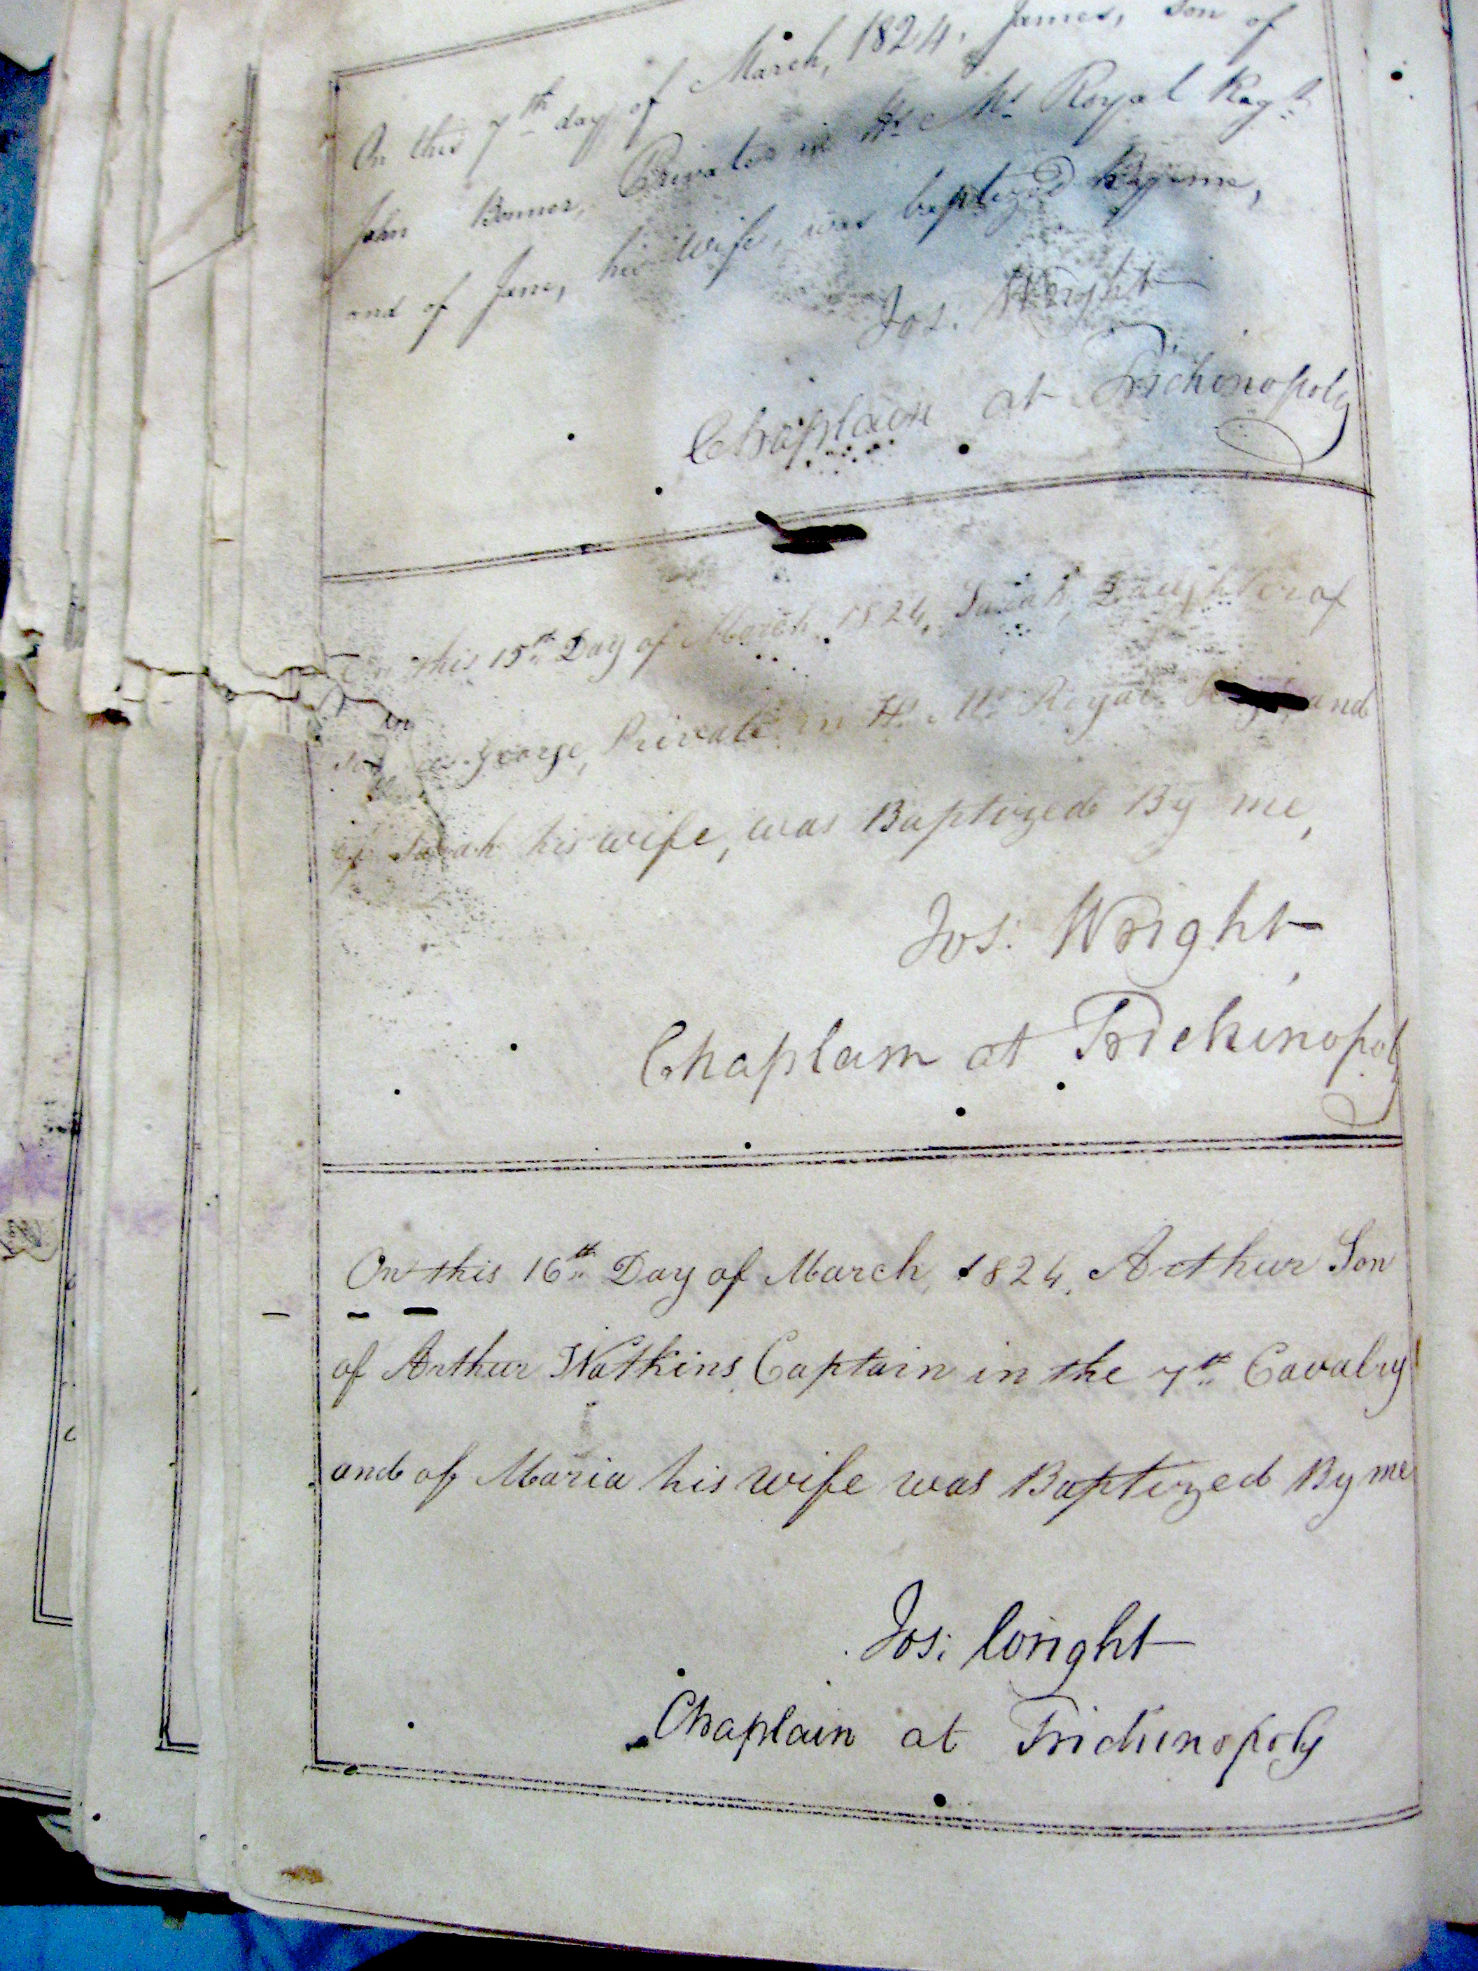 On this 7th day of March, 1824, James, Son of
John Bonner, Private in H. M's Royal Regt
and of Jane, his wife, was baptized By me,
Jos. Wright
Chaplain at Trichinopoly
On this 15th Day of March 1824, Sarah, Daughter of
George, Private in H. M's Royal and
of Sarah his wife, was Baptized By me,
Jos: Wright
Chaplain at Trichinopoly
On this 16th Day of March, 1824, Arthur Son
of Arthur Watkins, Captain in the 7th Cavalry
and of Maria his wife was Baptized By me
Jos: Wright
Chaplain at Trichinopoly